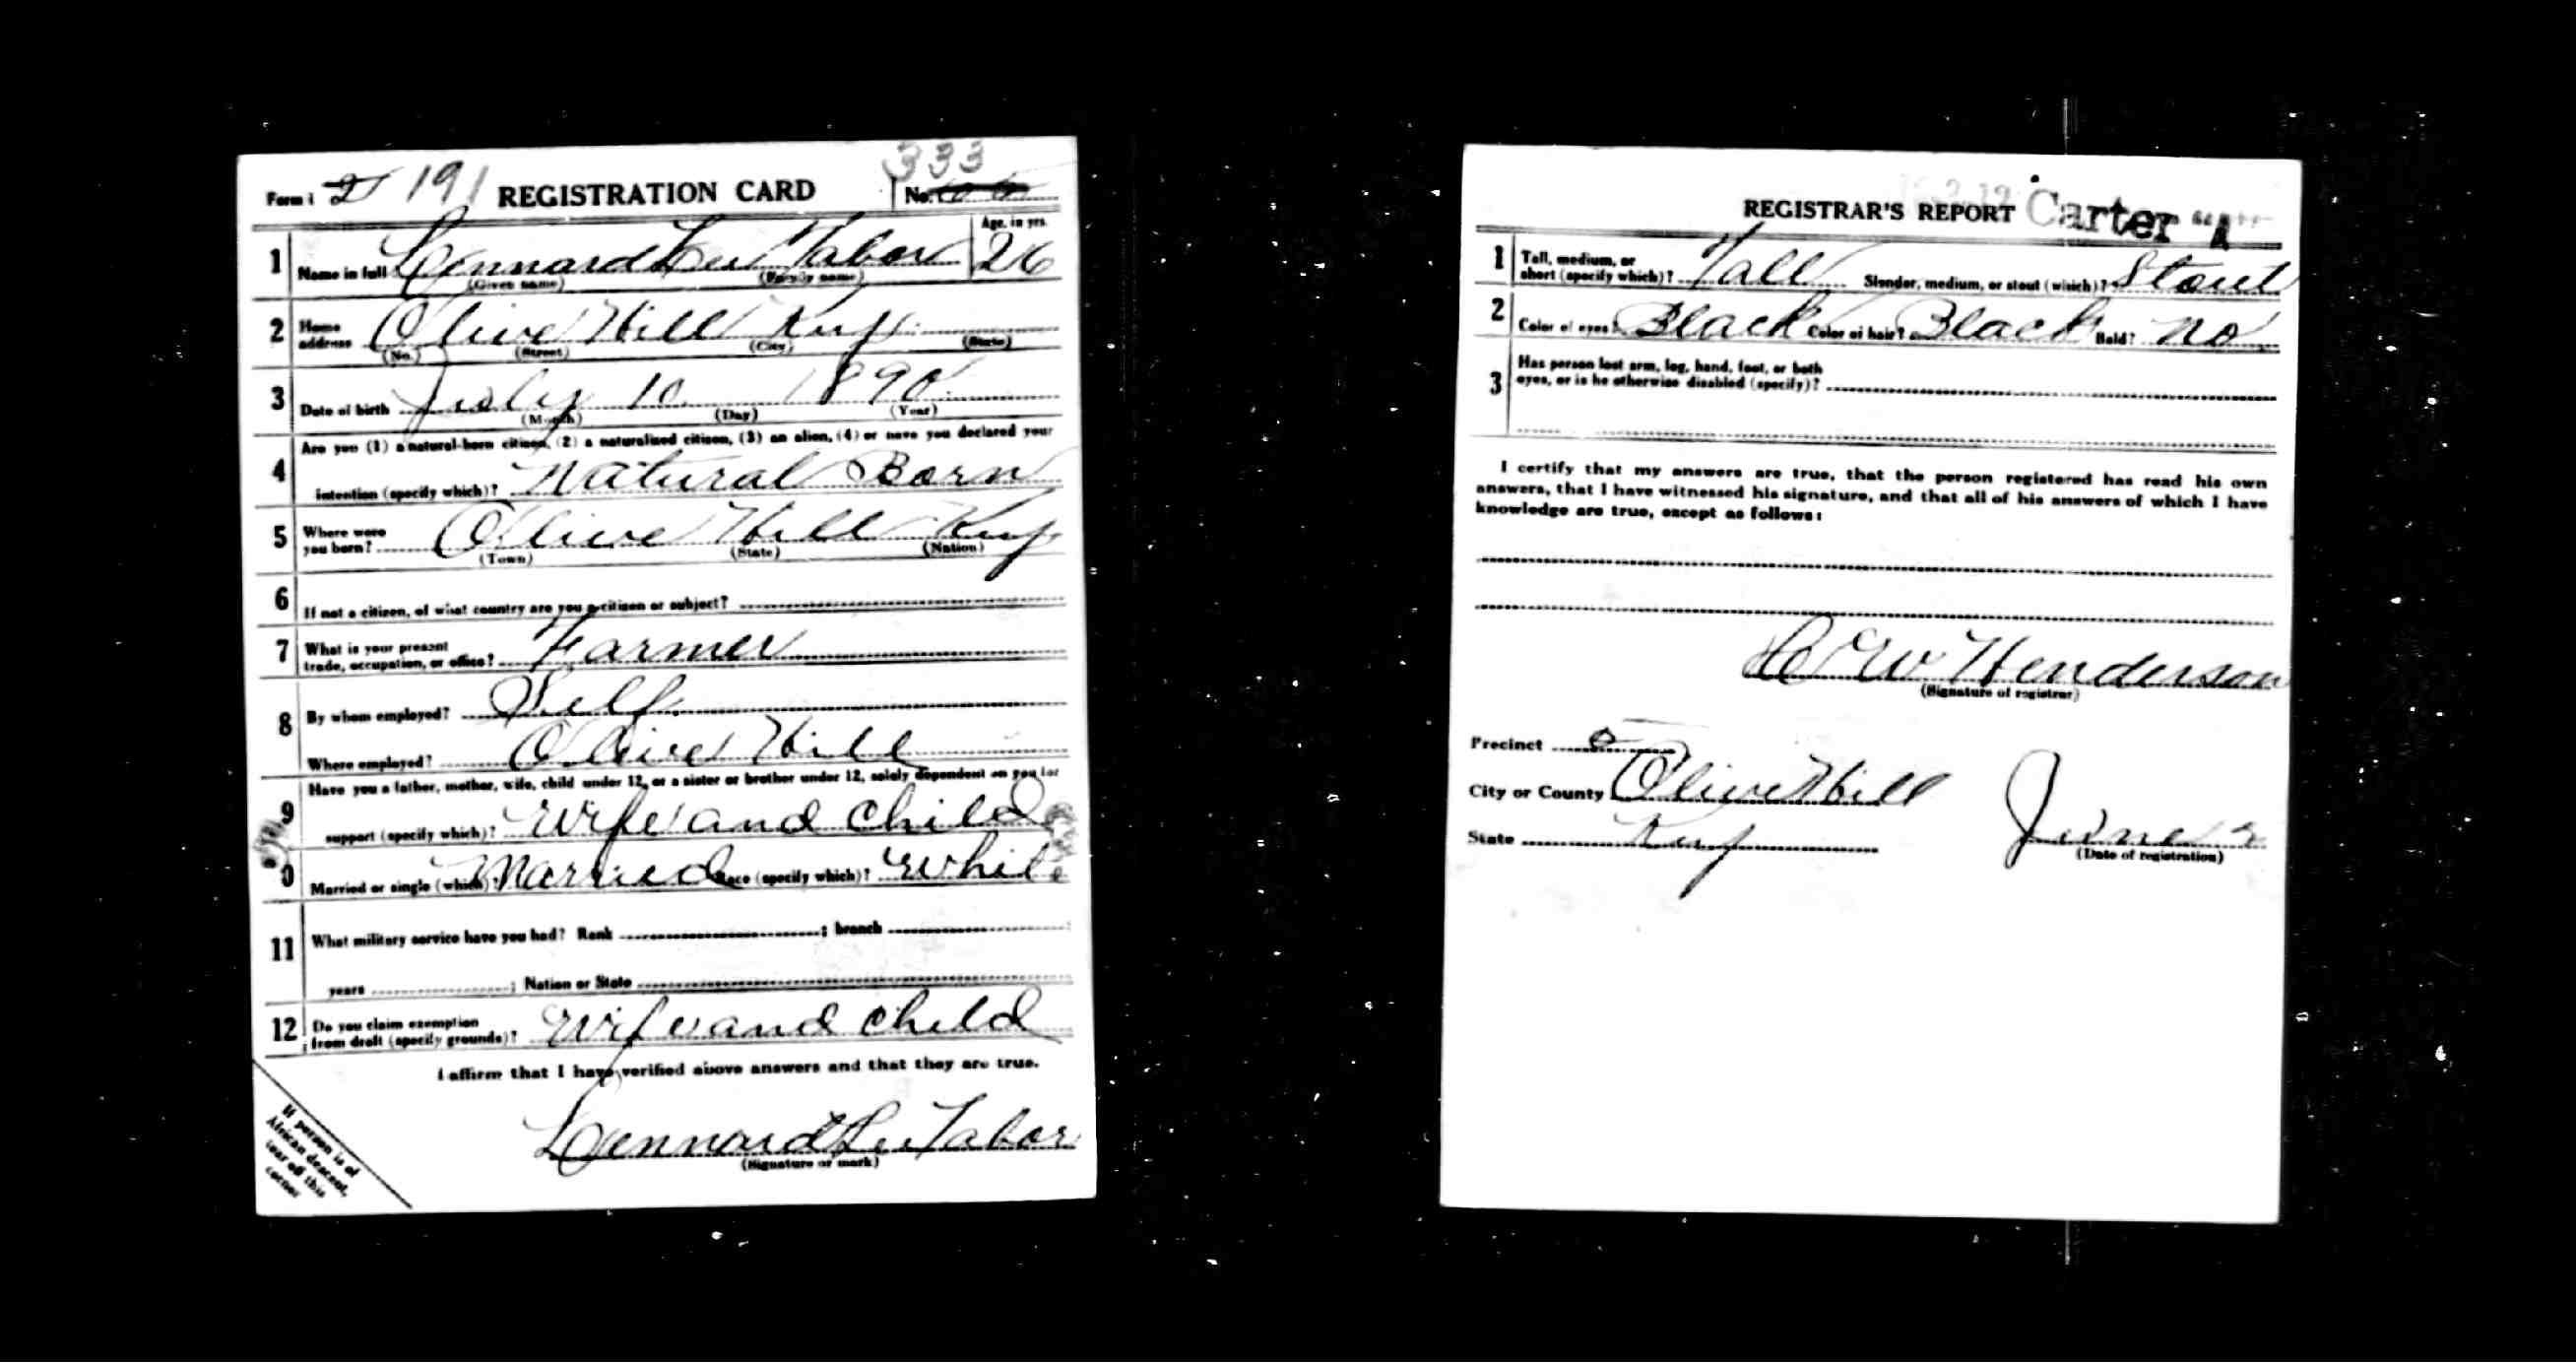 Form 1 191 REGISTRATION CARD No. 333
1 Name in full Lennard Lee Tabor Age, in yrs. 26
(Given name) (Family name)
2 Home address Olive Hill Ky
(No.) (Street) (City) (State)
3 Date of birth July 10 1890
(Month) (Day) (Year)
Are you (1) a natural-born citizen, (2) a naturalized citizen, (3) an alien, (4) or have you declared your
4 intention (specify which)? Natural Born
5 Where were you born? Olive Hill Ky
(Town) (State) (Nation)
6 If not a citizen, of what country are you a citizen or subject?
7 What is your present trade, occupation, or office? Farmer
8 By whom employed? Self
Where employed? Olive Hill
Have you a father, mother, wife, child under 12, or a sister or brother under 12, solely dependent on you for
9 support (specify which)? Wife and child
0 Married or single (which)? Married Race (specify which)? White
11 What military service have you had? Rank ; branch
years ; Nation or State
12 Do you claim exemption from draft (specify grounds)? Wife and child
I affirm that I have verified above answers and that they are true.
Lennard Lee Tabor
(Signature or mark)
If person is of
African descent,
tear off this
corner
REGISTRAR'S REPORT Carter "A"
1 Tall, medium, or short (specify which)? Tall Slender, medium, or stout (which)? Stout
2 Color of eyes? Black Color of hair? Black Bald? No
3 Has person lost arm, leg, hand, foot, or both
eyes, or is he otherwise disabled (specify)?
I certify that my answers are true, that the person registered has read his own
answers, that I have witnessed his signature, and that all of his answers of which I have
knowledge are true, except as follows:
C W Henderson
(Signature of registrar)
Precinct
City or County Olive Hill
State Ky June
(Date of registration)